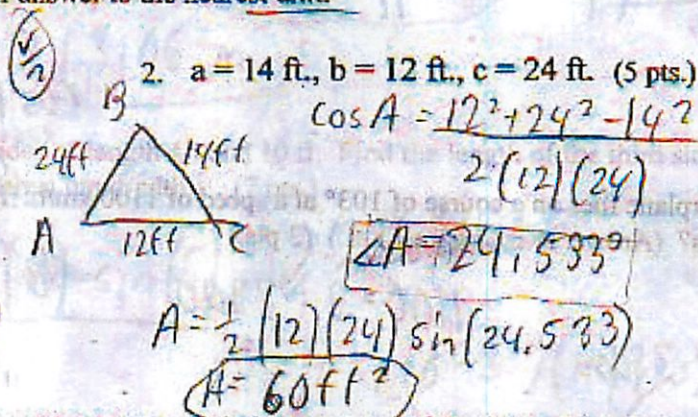 2. a = 14 ft., b = 12 ft., c = 24 ft. (5 pts.)
B
24ft 14ft
A 12ft C
cos A = 12² + 24² - 14²
2(12)(24)
∠A = 24.533°
A = 1/2 (12)(24) sin(24.533)
A = 60 ft²